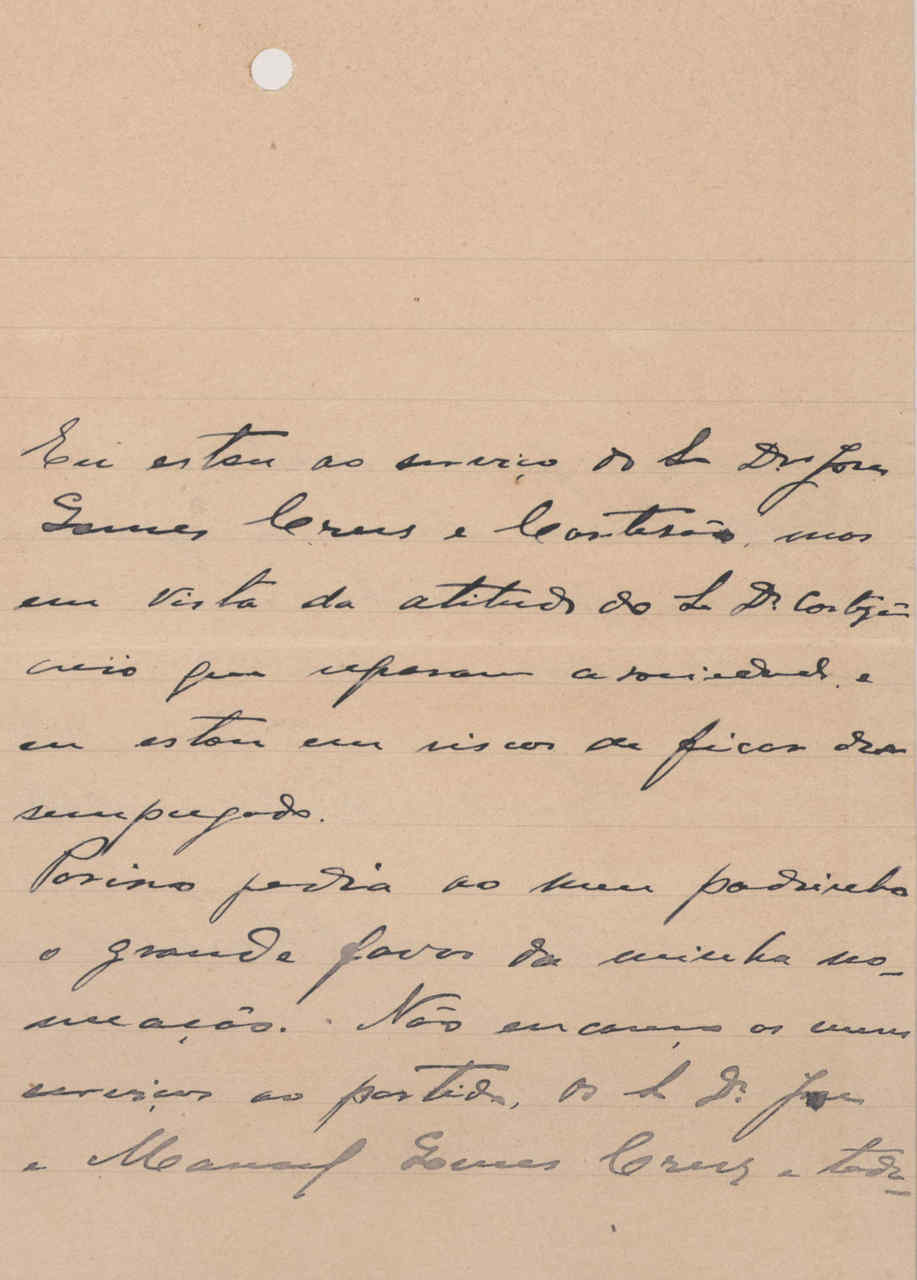 Eu estou ao serviço do Sr Dr. José
Gomes Cruz e Cortesão, mas
em vista da atitude do Sr Dr. Cortesão
creio que separam a sociedade, e
eu estou em riscos de ficar des
sempregado.
Por isso pedia ao meu padrinho
o grande favor da minha no-
meação. Não encareço os meus
serviços ao partido, os Sr Dr. José
e Manuel Gomes Cruz e todo-